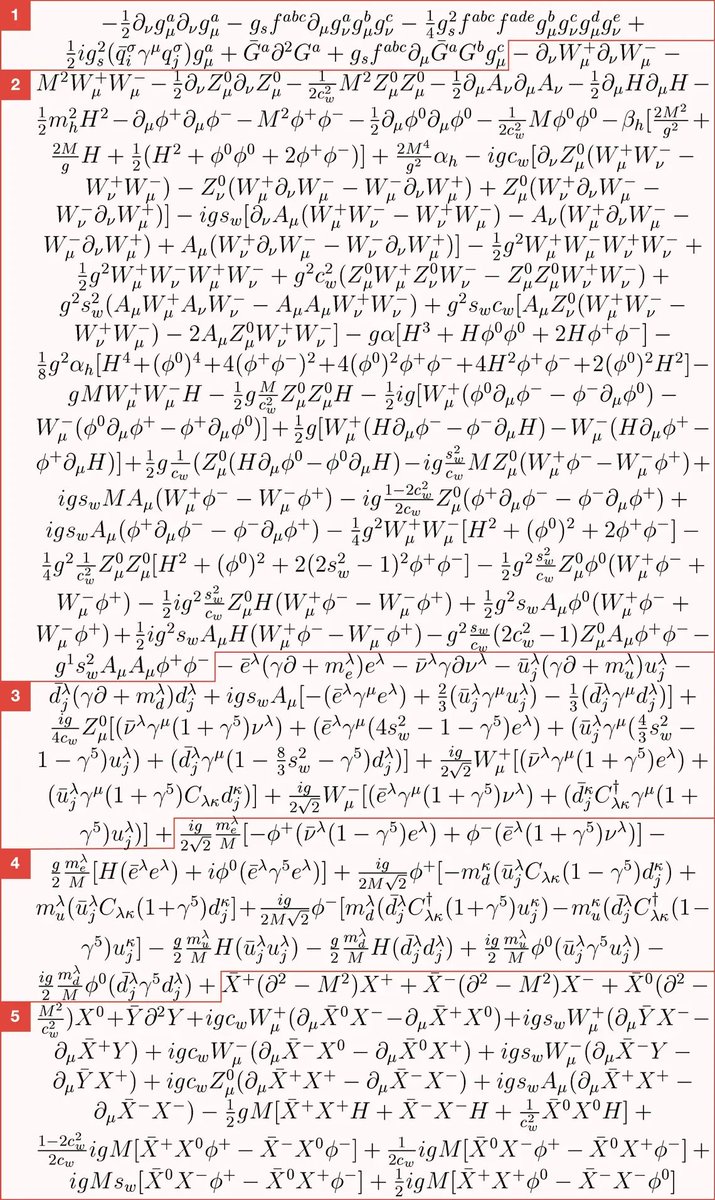 1 −½∂_νg^a_μ∂_νg^a_μ − g_sf^{abc}∂_μg^a_νg^b_μg^c_ν − ¼g²_sf^{abc}f^{ade}g^b_μg^c_νg^d_μg^e_ν +
½ig²_s(q̄^σ_iγ^μq^σ_j)g^a_μ + Ḡ^a∂²G^a + g_sf^{abc}∂_μḠ^aG^bg^c_μ − ∂_νW⁺_μ∂_νW⁻_μ −
2 M²W⁺_μW⁻_μ − ½∂_νZ⁰_μ∂_νZ⁰_μ − \frac{1}{2c²_w}M²Z⁰_μZ⁰_μ − ½∂_μA_ν∂_μA_ν − ½∂_μH∂_μH −
½m²_hH² − ∂_μφ⁺∂_μφ⁻ − M²φ⁺φ⁻ − ½∂_μφ⁰∂_μφ⁰ − \frac{1}{2c²_w}Mφ⁰φ⁰ − β_h[\frac{2M²}{g²} +
\frac{2M}{g}H + ½(H² + φ⁰φ⁰ + 2φ⁺φ⁻)] + \frac{2M⁴}{g²}α_h − igc_w[∂_νZ⁰_μ(W⁺_μW⁻_ν −
W⁺_νW⁻_μ) − Z⁰_ν(W⁺_μ∂_νW⁻_μ − W⁻_μ∂_νW⁺_μ) + Z⁰_μ(W⁺_ν∂_νW⁻_μ −
W⁻_ν∂_νW⁺_μ)] − igs_w[∂_νA_μ(W⁺_μW⁻_ν − W⁺_νW⁻_μ) − A_ν(W⁺_μ∂_νW⁻_μ −
W⁻_μ∂_νW⁺_μ) + A_μ(W⁺_ν∂_νW⁻_μ − W⁻_ν∂_νW⁺_μ)] − ½g²W⁺_μW⁻_μW⁺_νW⁻_ν +
½g²W⁺_μW⁻_νW⁺_μW⁻_ν + g²c²_w(Z⁰_μW⁺_μZ⁰_νW⁻_ν − Z⁰_μZ⁰_μW⁺_νW⁻_ν) +
g²s²_w(A_μW⁺_μA_νW⁻_ν − A_μA_μW⁺_νW⁻_ν) + g²s_wc_w[A_μZ⁰_ν(W⁺_μW⁻_ν −
W⁺_νW⁻_μ) − 2A_μZ⁰_μW⁺_νW⁻_ν] − gα[H³ + Hφ⁰φ⁰ + 2Hφ⁺φ⁻] −
⅛g²α_h[H⁴+(φ⁰)⁴+4(φ⁺φ⁻)²+4(φ⁰)²φ⁺φ⁻+4H²φ⁺φ⁻+2(φ⁰)²H²]−
gMW⁺_μW⁻_μH − ½g\frac{M}{c²_w}Z⁰_μZ⁰_μH − ½ig[W⁺_μ(φ⁰∂_μφ⁻ − φ⁻∂_μφ⁰) −
W⁻_μ(φ⁰∂_μφ⁺−φ⁺∂_μφ⁰)]+½g[W⁺_μ(H∂_μφ⁻−φ⁻∂_μH)−W⁻_μ(H∂_μφ⁺−
φ⁺∂_μH)]+½g\frac{1}{c_w}(Z⁰_μ(H∂_μφ⁰−φ⁰∂_μH)−ig\frac{s²_w}{c_w}MZ⁰_μ(W⁺_μφ⁻−W⁻_μφ⁺)+
igs_wMA_μ(W⁺_μφ⁻ − W⁻_μφ⁺) − ig\frac{1−2c²_w}{2c_w}Z⁰_μ(φ⁺∂_μφ⁻ − φ⁻∂_μφ⁺) +
igs_wA_μ(φ⁺∂_μφ⁻ − φ⁻∂_μφ⁺) − ¼g²W⁺_μW⁻_μ[H² + (φ⁰)² + 2φ⁺φ⁻] −
¼g²\frac{1}{c²_w}Z⁰_μZ⁰_μ[H² + (φ⁰)² + 2(2s²_w − 1)²φ⁺φ⁻] − ½g²\frac{s²_w}{c_w}Z⁰_μφ⁰(W⁺_μφ⁻ +
W⁻_μφ⁺) − ½ig²\frac{s²_w}{c_w}Z⁰_μH(W⁺_μφ⁻ − W⁻_μφ⁺) + ½g²s_wA_μφ⁰(W⁺_μφ⁻ +
W⁻_μφ⁺)+½ig²s_wA_μH(W⁺_μφ⁻−W⁻_μφ⁺)−g²\frac{s_w}{c_w}(2c²_w−1)Z⁰_μA_μφ⁺φ⁻−
g¹s²_wA_μA_μφ⁺φ⁻ − ē^λ(γ∂ + m^λ_e)e^λ − ν̄^λγ∂ν^λ − ū^λ_j(γ∂ + m^λ_u)u^λ_j −
3 d̄^λ_j(γ∂ + m^λ_d)d^λ_j + igs_wA_μ[−(ē^λγ^μe^λ) + ⅔(ū^λ_jγ^μu^λ_j) − ⅓(d̄^λ_jγ^μd^λ_j)] +
\frac{ig}{4c_w}Z⁰_μ[(ν̄^λγ^μ(1 + γ⁵)ν^λ) + (ē^λγ^μ(4s²_w − 1 − γ⁵)e^λ) + (ū^λ_jγ^μ(\frac{4}{3}s²_w −
1 − γ⁵)u^λ_j) + (d̄^λ_jγ^μ(1 − \frac{8}{3}s²_w − γ⁵)d^λ_j)] + \frac{ig}{2√2}W⁺_μ[(ν̄^λγ^μ(1 + γ⁵)e^λ) +
(ū^λ_jγ^μ(1 + γ⁵)C_{λκ}d^κ_j)] + \frac{ig}{2√2}W⁻_μ[(ē^λγ^μ(1 + γ⁵)ν^λ) + (d̄^κ_jC^†_{λκ}γ^μ(1 +
γ⁵)u^λ_j)] + \frac{ig}{2√2}\frac{m^λ_e}{M}[−φ⁺(ν̄^λ(1 − γ⁵)e^λ) + φ⁻(ē^λ(1 + γ⁵)ν^λ)] −
4 \frac{g}{2}\frac{m^λ_e}{M}[H(ē^λe^λ) + iφ⁰(ē^λγ⁵e^λ)] + \frac{ig}{2M√2}φ⁺[−m^κ_d(ū^λ_jC_{λκ}(1 − γ⁵)d^κ_j) +
m^λ_u(ū^λ_jC_{λκ}(1+γ⁵)d^κ_j]+\frac{ig}{2M√2}φ⁻[m^λ_d(d̄^λ_jC^†_{λκ}(1+γ⁵)u^κ_j)−m^κ_u(d̄^λ_jC^†_{λκ}(1−
γ⁵)u^κ_j] − \frac{g}{2}\frac{m^λ_u}{M}H(ū^λ_ju^λ_j) − \frac{g}{2}\frac{m^λ_d}{M}H(d̄^λ_jd^λ_j) + \frac{ig}{2}\frac{m^λ_u}{M}φ⁰(ū^λ_jγ⁵u^λ_j) −
\frac{ig}{2}\frac{m^λ_d}{M}φ⁰(d̄^λ_jγ⁵d^λ_j) + X̄⁺(∂² − M²)X⁺ + X̄⁻(∂² − M²)X⁻ + X̄⁰(∂² −
5 \frac{M²}{c²_w})X⁰+Ȳ∂²Y+igc_wW⁺_μ(∂_μX̄⁰X⁻−∂_μX̄⁺X⁰)+igs_wW⁺_μ(∂_μȲX⁻−
∂_μX̄⁺Y) + igc_wW⁻_μ(∂_μX̄⁻X⁰ − ∂_μX̄⁰X⁺) + igs_wW⁻_μ(∂_μX̄⁻Y −
∂_μȲX⁺) + igc_wZ⁰_μ(∂_μX̄⁺X⁺ − ∂_μX̄⁻X⁻) + igs_wA_μ(∂_μX̄⁺X⁺ −
∂_μX̄⁻X⁻) − ½gM[X̄⁺X⁺H + X̄⁻X⁻H + \frac{1}{c²_w}X̄⁰X⁰H] +
\frac{1−2c²_w}{2c_w}igM[X̄⁺X⁰φ⁺ − X̄⁻X⁰φ⁻] + \frac{1}{2c_w}igM[X̄⁰X⁻φ⁺ − X̄⁰X⁺φ⁻] +
igMs_w[X̄⁰X⁻φ⁺ − X̄⁰X⁺φ⁻] + ½igM[X̄⁺X⁺φ⁰ − X̄⁻X⁻φ⁰]